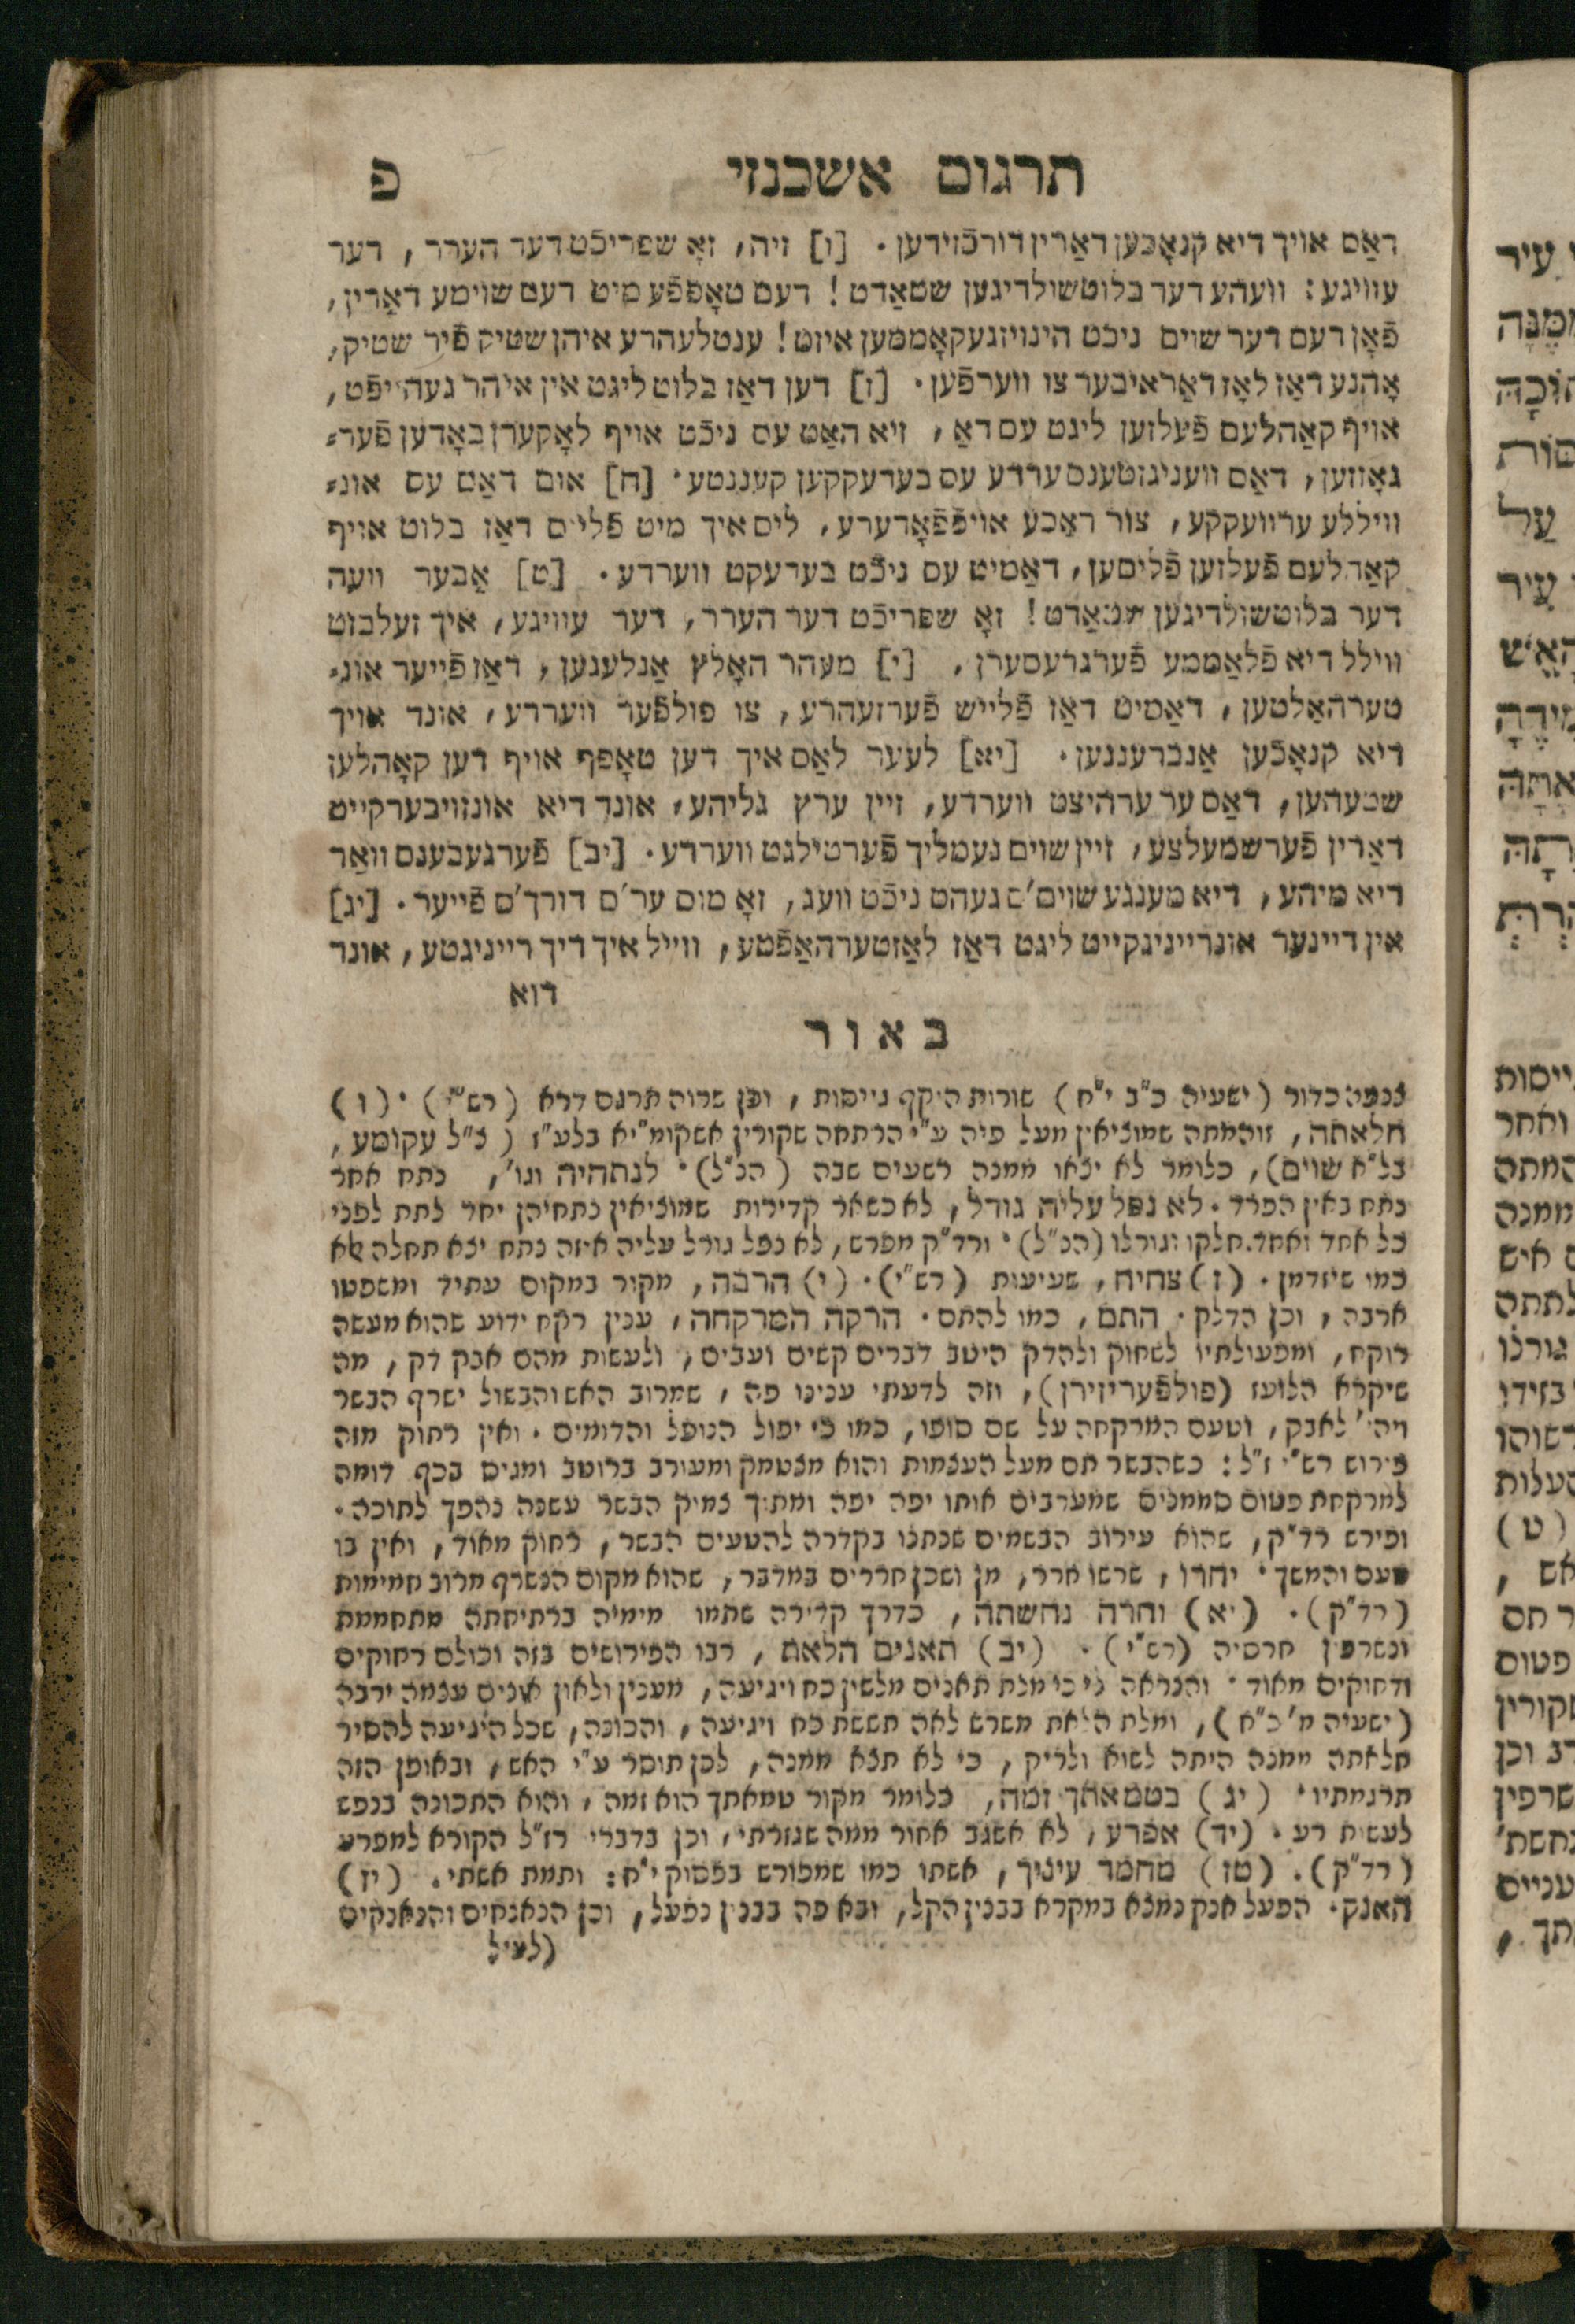 תרגום אשכנזי פ
דאַס אויך דיא קנאָכֿען דאַרין דורכֿזידען. [ו] זיה, זאָ שפריכֿט דער הערר, דער
עוויגע: וועהע דער בלוטשולדיגען שטאַדט! דעם טאָפפֿע מיט דעם שוימע דאַרין,
פֿאָן דעם דער שוים ניכט הינויזגעקאָממען איזט! ענטלעהרע איהן שטיק פֿיר שטיק,
אָהנע דאַז לאָז דאַראיבער צו ווערפֿען. [ז] דען דאַז בלוט ליגט אין איהר
אויף קאַהלעם פֿעלזען ליגט עס דאַ, זיא האַט עס ניכֿט אויף לאָקערן באָדען פֿער⸗
גאָזזען, דאַס וועניגזטענס ערדע עס בערעקקען קעננטע. [ח] אום דאַס עס אונ⸗
וויללע ערוועקקע, צור ראַכע אויפֿפֿאָדערע, ליס איך מיט דאַז בלוט אויף
קאַהלעם פֿעלזען פֿליסען, דאַמיט עס ניכֿט בערעקט ווערדע. [ט] אָבער וועה
דער בלוטשולדיגען שטאַדט! זאָ שפריכֿט דער הערר, דער עוויגע, איך זעלבזט
ווילל דיא פֿלאַממע פֿערגרעסערן. [י] מעהר האָלץ אַנלעגען, דאַז פֿייער אונ⸗
טערהאַלטען, דאַמיט דאַז פֿלייש פֿערזעהרע, צו פולפֿער ווערדע, אונד אויך
דיא קנאָכֿען אַנברעננען. [יא] לעער לאַס איך דען טאָפף אויף דען קאָהלען
שטעהען, דאַס ער ערהיצט ווערדע, זיין ערץ גליהע, אונד דיא אונזויבערקייט
דאַרין פֿערשמעלצע, זיין שוים געמליך פֿערטילגט ווערדע. [יב] פֿערגעבענס וואַר
דיא מיהע, דיא מענגע שוים'ס געהט ניכֿט וועג, זאָ מוס ער'ס דורך'ס פֿייער. [יג]
אין דיינער אונרייניגקייט ליגט דאַז לאַזטערהאַפֿטע, ווייל איך דיך רייניגטע, אונד
דוא
באור
כדור (ישעיה כ"ב י"ח) שורות היקף גייסות, וכן שרוה תרגם דרא (רש"י). (ו)
חלאתה, זוהמתה שמוציאין מעל פיה ע"י הרתחה שקורין אשקומ"יא בלע"ז (צ"ל עקומע,
בל"א שוים), כלומר לא יצאו ממנה רשעים שבה (הנ"ל). לנתחיה וגו', נתח אחר
נתח באין הפרד. לא נפל עליה גורל, לא כשאר קדירות שמוציאין נתחיהן יחד לתת לפני
כל אחד ואחד. חלקו וגורלו (הנ"ל). ורד"ק מפרש, לא נפל גורל עליה איזה נתח יצא תחלה אלא
כמו שיזדמן. (ז) צחיח, שעיעות (רש"י). (י) הרבה, מקור במקום עתיד ומשפטו
ארבה, וכן הדלק. התם, כמו להתם. הרקה המרקחה, ענין רקח ידוע שהוא מעשה
רוקח, ומפעולתיו לשחוק ולהדק היטב דברים קשים ועבים, ולעשות מהם אבק דק, מה
שיקרא הלועז (פולפֿעריזירן), וזה לדעתי ענינו פה, שמרוב האש והבשול ישרף הבשר
ויהי' לאבק, וטעם המרקחה על שם סופו, כמו כי יפול הנופל והדומים. ואין רחוק מזה
פירוש רש"י ז"ל: כשהבשר תם מעל העצמות והוא מצטמק ומעורב ברוטב ומגיס בכף דומה
למרקחת פטום סממנים שמערבים אותו יפה יפה ומתוך צמיק הבשר עשנה נהפך לתוכה.
ופירש רד"ק, שהוא עירוב הבשמים שנתנו בקדרה להטעים הבשר, רחוק מאוד, ואין בו
טעם והמשך. יחרו, שרשו חרר, מן ושכן חררים במדבר, שהוא מקום הנשרף מרוב חמימות
(רד"ק). (יא) וחרה נחשתה, כדרך קדירה שתמו מימיה ברתיחתה מתחממת
ונשרפין חרסיה (רש"י). (יב) תאנים הלאת, רבו הפירושים בזה וכולם רחוקים
ודחוקים מאוד. והנראה לי כי מלת תאנים מלשון כח ויגיעה, מענין ולאון אונים עצמה ירבה
(ישעיה מ' כ"ח), ומלת הלאת משרש לאה תששת כח ויגיעה, והכונה, שכל היגיעה להסיר
חלאתה ממנה היתה לשוא ולריק, כי לא תצא ממנה, לכן תוסר ע"י האש, ובאופן הזה
תרגמתיו. (יג) בטמאתך זמה, כלומר מקור טמאתך הוא זמה, והוא התכונה בנפש
לעשות רע. (יד) אפרע, לא אשגב אחור ממה שגזרתי, וכן בדברי רז"ל הקורא למפרע
(רד"ק). (טז) מחמד עיניך, אשתו כמו שמפורש בפסוק י"ח: ותמת אשתי. (יז)
האנק. הפעל אנק נמצא במקרא בבנין הקל, ובא פה בבנין נפעל, וכן הנאנחים והנאנקים
(לעיל